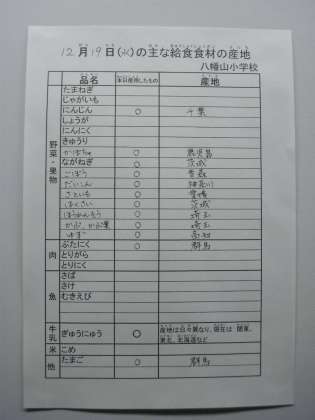 12月19日(水)の主な給食食材の産地
八幡山小学校
品名 本日使用したもの 産地
野菜・果物
たまねぎ
じゃがいも
にんじん ○ 千葉
しょうが
にんにく
きゅうり
かぼちゃ ○ 鹿児島
ながねぎ ○ 茨城
ごぼう ○ 青森
だいこん ○ 神奈川
さといも ○ 愛媛
はくさい ○ 茨城
ほうれんそう ○ 埼玉
かぶ、かぶ葉 ○ 埼玉
ゆず ○ 高知
肉
ぶたにく ○ 群馬
とりがら
とりにく
魚
さば
さけ
むきえび
牛乳 ぎゅうにゅう ○ 産地は日々異なり、現在は 関東、
東北、北海道など
米 こめ
他 たまご ○ 群馬